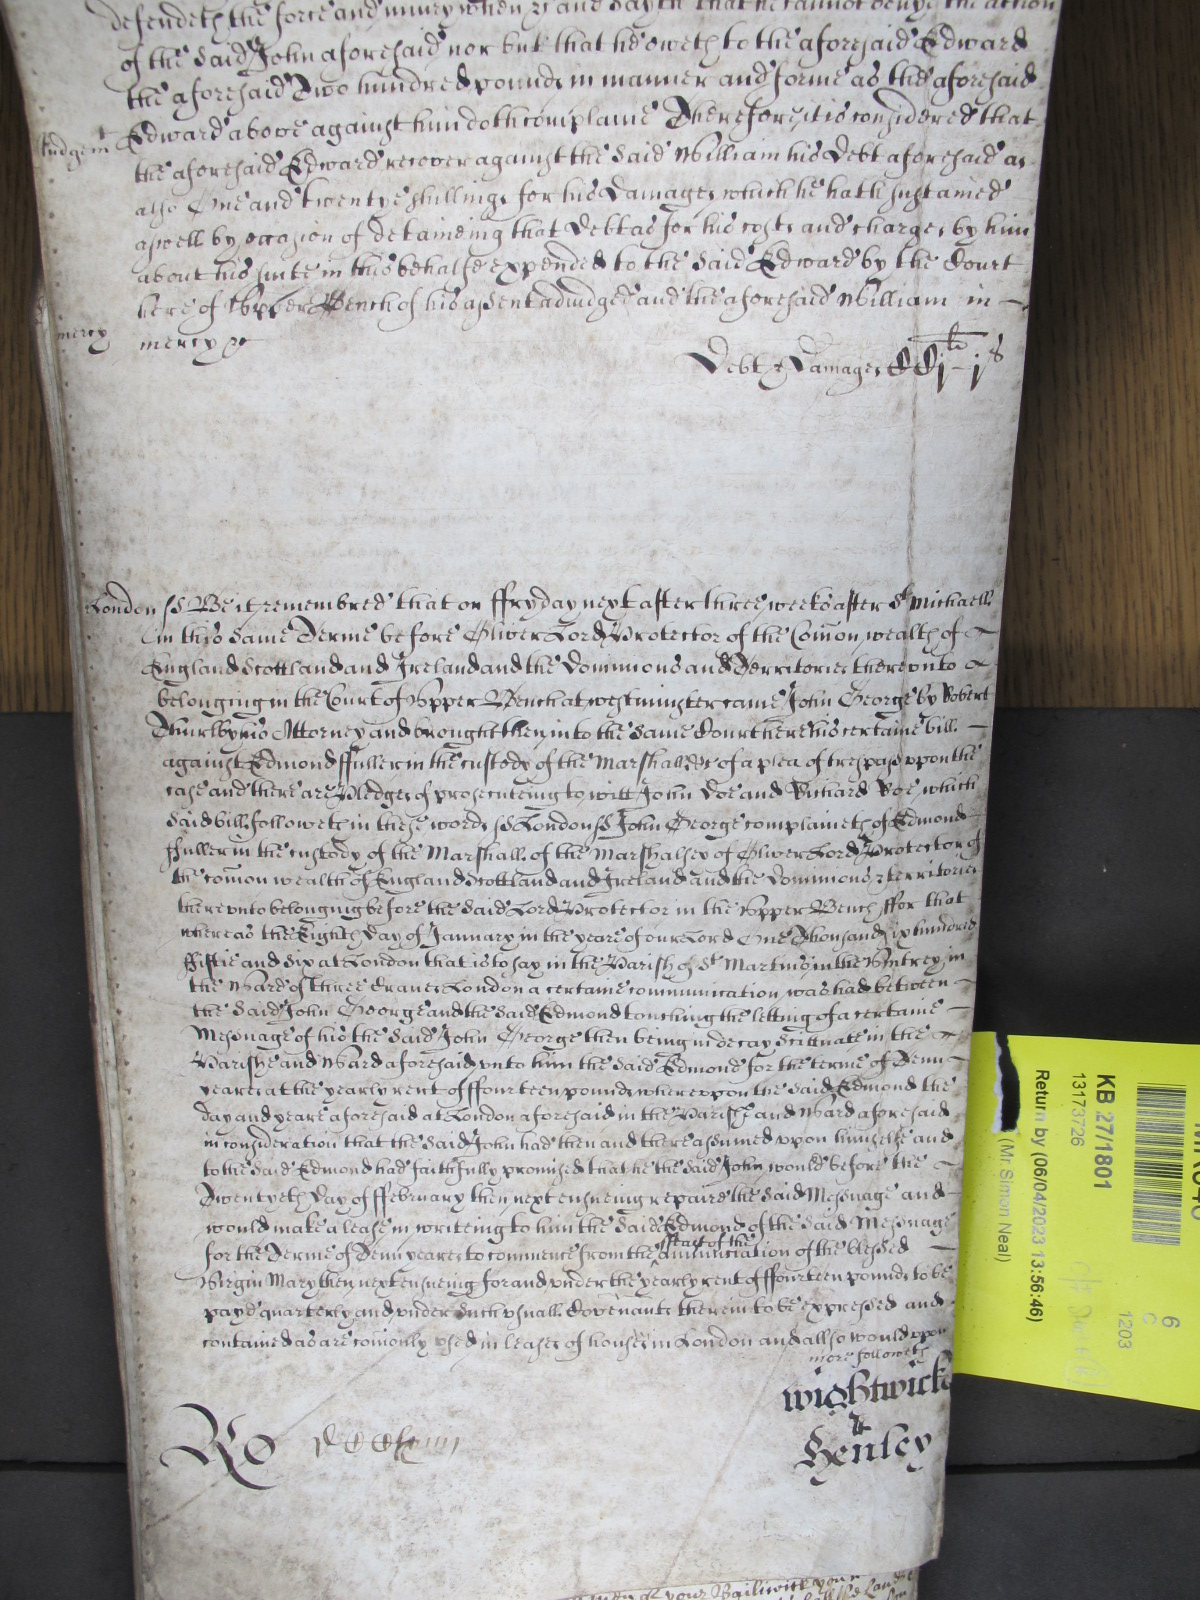 defendeth the force and iniury when &c and sayth that he cannot denye the action
of the said John aforesaid nor but that he oweth to the aforesaid Edward
the aforesaid Two hundred pounds in manner and forme as the aforesaid
Edward above against him doth complaine Therefore it is considered that
Iudgemt
the aforesaid Edward recover against the said William his Debt aforesaid as
also One and twentye shillings for his Damages which he hath sustained
aswell by occasion of detaineing that Debt as for his costs and charges by him
about his suite in this behalfe expended to the said Edward by the Court
here of Vpper Bench of his assent adiudged and the aforesaid William in
mercy
mercy &c
Debt & Damages CCj li - j s
London ss Be it remembred that on ffryday next after three weeks after St Michaell
in this same Terme before Oliver Lord Protector of the Comon wealth of
England Scottland and Ireland and the Dominions and Territories therevnto
belonging in the Court of Vpper Bench at westminster came John George by Robert
Thurlby his Attorney and brought then into the same Court here his certaine bill
against Edmond ffuller in the custody of the Marshall &c of a plea of trespass vppon the
case and there are Pledges of prosecuteing to witt John Doe and Richard Roe which
said bill followeth in these words ss London ss John George complaineth of Edmond
ffuller in the custody of the Marshall of the Marshalsey of Oliver Lord Protector of
the comon wealth of England Scottland and Ireland and the Dominions & territories
therevnto belonging before the said Lord Protector in the Vpper Bench ffor that
whereas the Eighth day of January in the yeare of our Lord One Thousand six hundred
ffiftie and six at London that is to say in the Parish of St Martins in the Vintrey in
the Ward of three Cranes London a certaine communication was had between
the said John George and the said Edmond touching the letting of a certaine
Messuage of his the said John George then being in decay Scittuate in the
Parishe and Ward aforesaid vnto him the said Edmond for the terme of Tenn
yeares at the yearly rent of ffourteen pounds wherevpon the said Edmond the
day and yeare aforesaid at London aforesaid in the Parish and Ward aforesaid
in consideration that the said John had then and there assumed vpon himselfe and
to the said Edmond had faithfully promised that he the said John would before the
Twentyeth Day of ffebruary then next ensueing repaire the said Messuage and
would make a lease in writeing to him the said Edmond of the said Messuage
ffeast of the
for the Terme of Tenn yeares to commence from the Annunciation of the blessed
Virgin Mary then next ensueing for and vnder the yearly rent of ffourteen pounds to be
payd quarterly and vnder such vsuall Covenants therein to be expressed and
contained as are comonly vsed in leases of houses in London and allso would vpon
more followeth
wightwick
&
Henley
Ro
KB 27/1801
13173726
Return by (06/04/2023 13:56:46)
(Mr. Simon Neal)
6
C
1203
of your Bailiwick